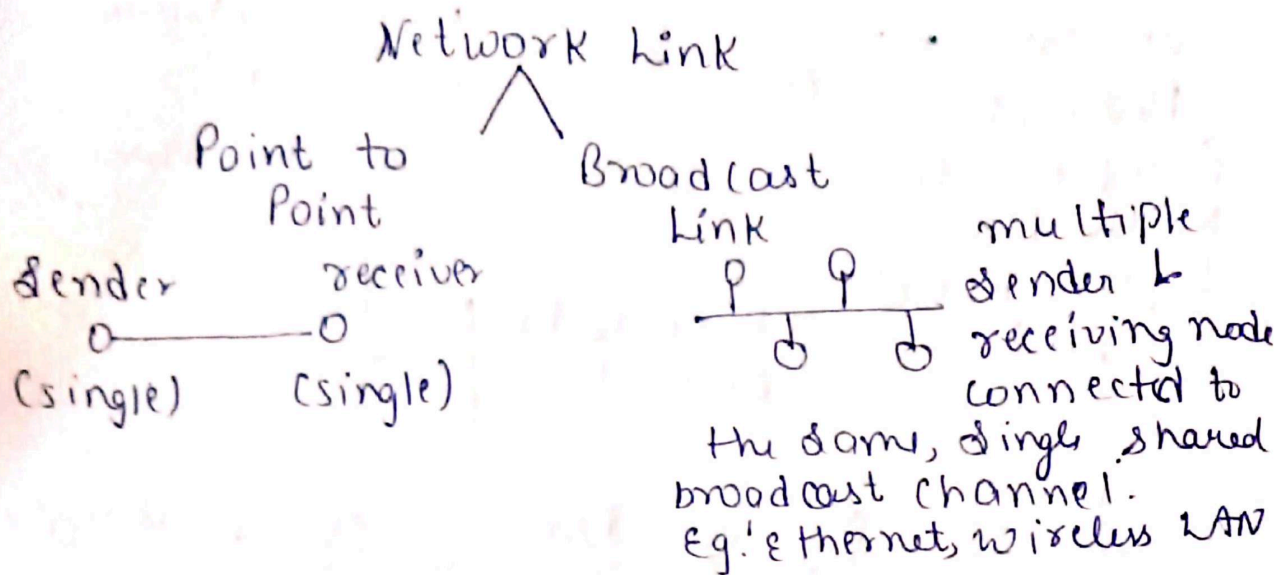 Network Link
Point to
Point
Sender receiver
(single) (single)
Broadcast
Link
multiple
sender &
receiving node
connected to
the same, single shared
broadcast channel.
Eg: Ethernet, wireless LAN